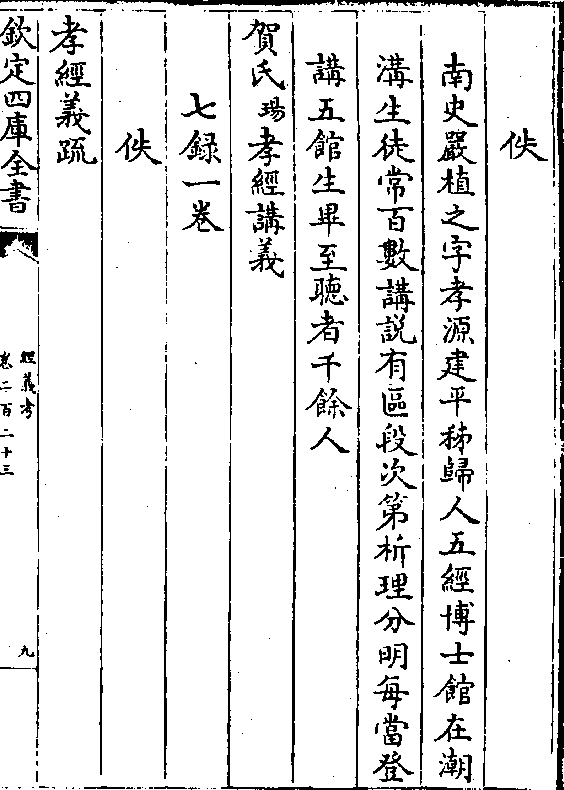 佚
南史嚴植之字孝源建平秭歸人五經博士館在潮
溝生徒常百數講説有區段次第析理分明每當登
講五館生畢至聽者千餘人
賀氏瑒孝經講義
七録一卷
佚
孝經義疏
欽定四庫全書
經義考
卷二百二十三
九